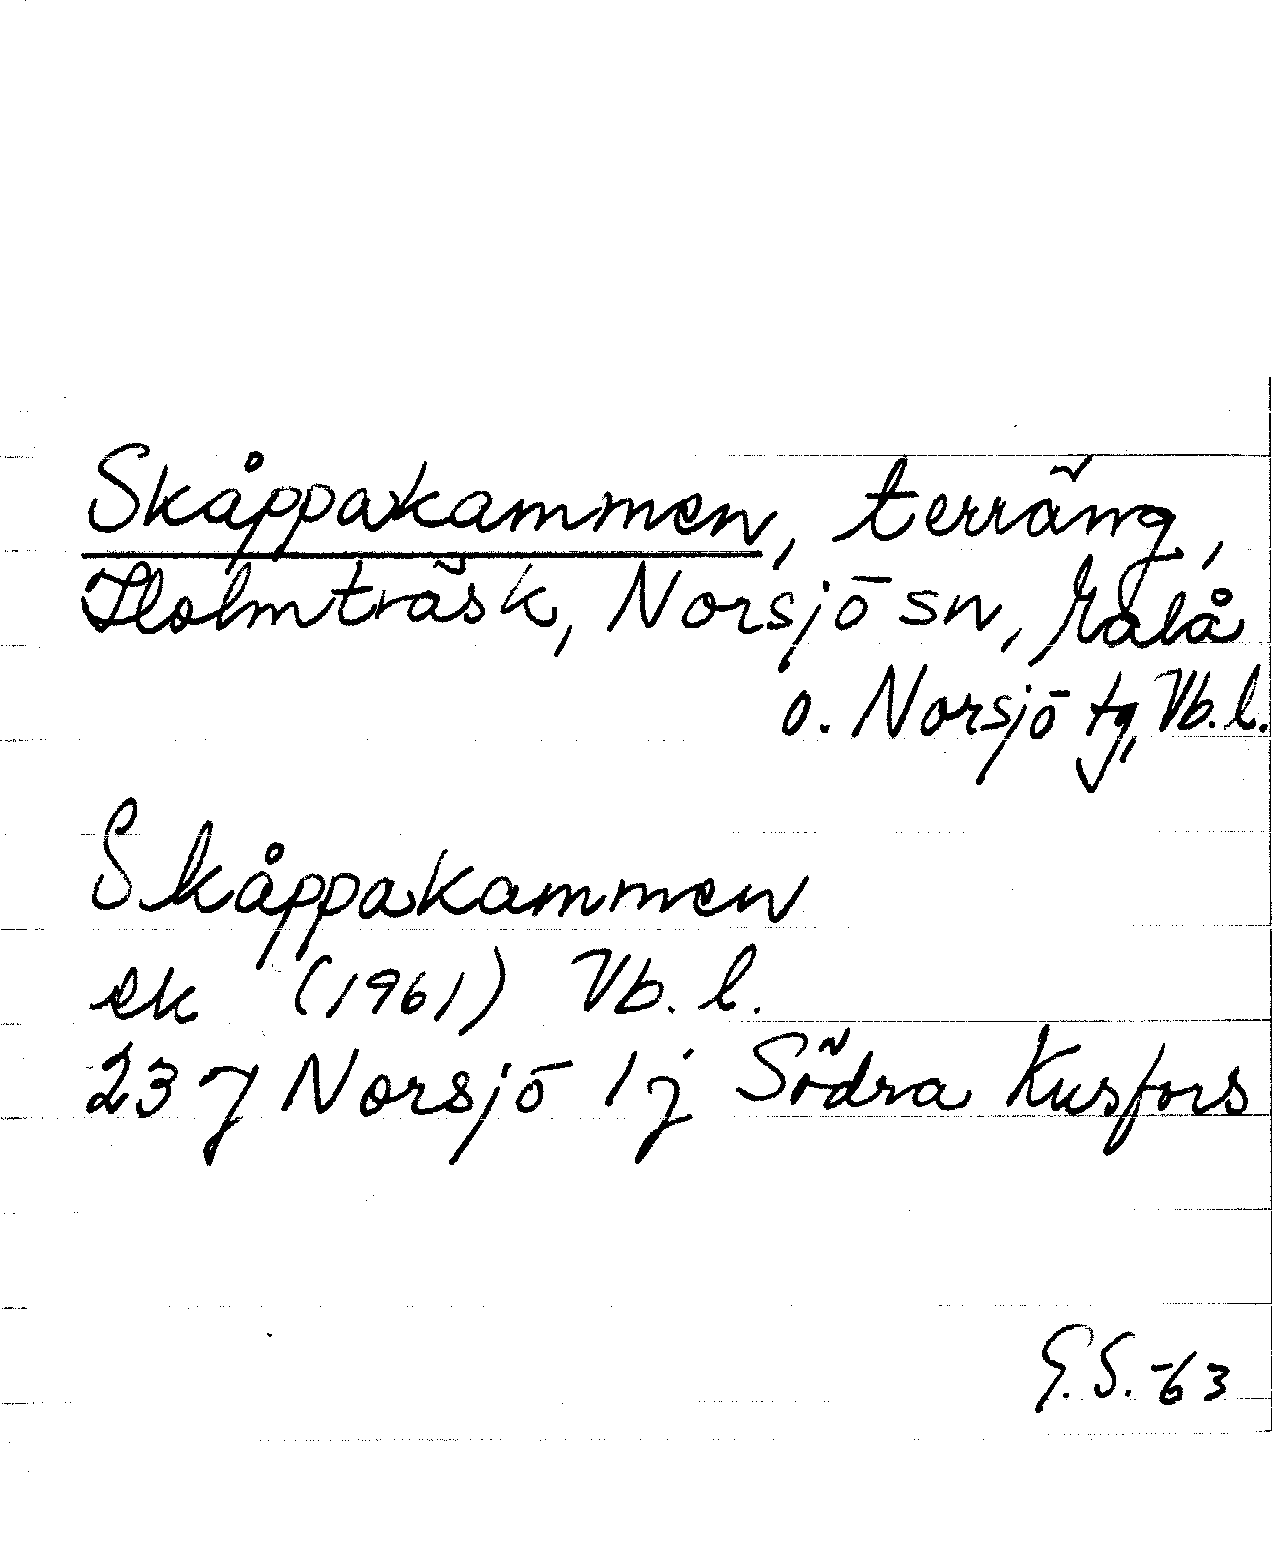 Skåppakammen, terräng,
Holmträsk, Norsjö sn, Malå
o. Norsjö tg, Vb.l.
Skåppakammen
ek (1961) Vb. l.
23 J Norsjö 1 j Södra Kusfors
G.S. -63